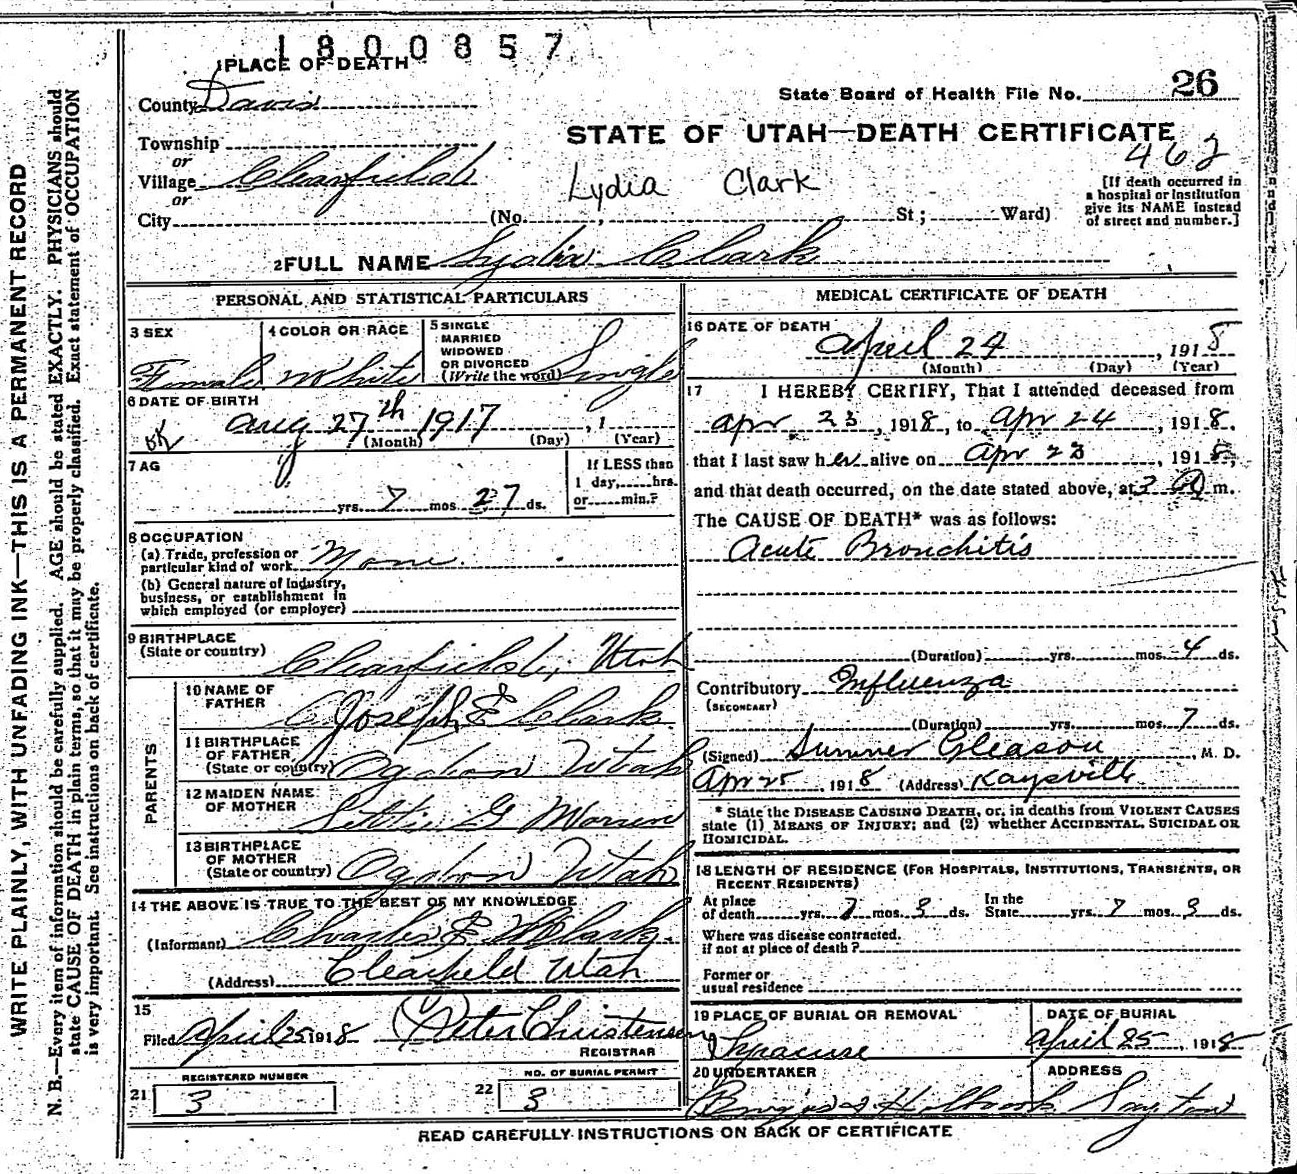 1800857
1 PLACE OF DEATH
County Davis
State Board of Health File No. 26
STATE OF UTAH—DEATH CERTIFICATE
462
Township
or
Village Clearfield
Lydia Clark
or
City (No. , St; Ward)
[If death occurred in
a hospital or institution
give its NAME instead
of street and number.]
2 FULL NAME Lydia Clark
PERSONAL AND STATISTICAL PARTICULARS
3 SEX
Female
4 COLOR OR RACE
White
5 SINGLE
MARRIED
WIDOWED
OR DIVORCED
(Write the word) Single
6 DATE OF BIRTH
Aug 27th 1917 , 1
(Month) (Day) (Year)
OK
7 AG
yrs. 7 mos. 27 ds.
If LESS than
1 day, hrs.
or min.?
8 OCCUPATION
(a) Trade, profession or
particular kind of work None
(b) General nature of industry,
business, or establishment in
which employed (or employer)
9 BIRTHPLACE
(State or country) Clearfield, Utah
PARENTS
10 NAME OF
FATHER Joseph E Clark
11 BIRTHPLACE
OF FATHER
(State or country) Ogden Utah
12 MAIDEN NAME
OF MOTHER G Warren
13 BIRTHPLACE
OF MOTHER
(State or country) Ogden Utah
14 THE ABOVE IS TRUE TO THE BEST OF MY KNOWLEDGE
(Informant) Charles E Clark
(Address) Clearfield Utah
15
Filed April 25 1918 Peter Christensen
REGISTRAR
REGISTERED NUMBER
21 3
NO. OF BURIAL PERMIT
22 3
MEDICAL CERTIFICATE OF DEATH
16 DATE OF DEATH
April 24 , 1918
(Month) (Day) (Year)
17 I HEREBY CERTIFY, That I attended deceased from
Apr 23 , 1918, to Apr 24 , 1918,
that I last saw her alive on Apr 23 , 1918,
and that death occurred, on the date stated above, at 3 A m.
The CAUSE OF DEATH* was as follows:
Acute Bronchitis
(Duration) yrs. mos. 4 ds.
Contributory Influenza
(SECONDARY)
(Duration) yrs mos 7 ds.
(Signed) Sumner Gleason , M. D.
Apr 25 , 1918 (Address) Kaysville
* State the DISEASE CAUSING DEATH, or, in deaths from VIOLENT CAUSES
state (1) MEANS OF INJURY; and (2) whether ACCIDENTAL, SUICIDAL OR
HOMICIDAL.
18 LENGTH OF RESIDENCE (FOR HOSPITALS, INSTITUTIONS, TRANSIENTS, OR
RECENT RESIDENTS)
At place
of death yrs. 7 mos. 3 ds.
In the
State yrs. 7 mos 3 ds.
Where was disease contracted,
if not at place of death?
Former or
usual residence
19 PLACE OF BURIAL OR REMOVAL
Syracuse
DATE OF BURIAL
April 25 , 1918
20 UNDERTAKER
Holbrook
ADDRESS
Layton
READ CAREFULLY INSTRUCTIONS ON BACK OF CERTIFICATE
WRITE PLAINLY, WITH UNFADING INK—THIS IS A PERMANENT RECORD
N. B.—Every item of information should be carefully supplied. AGE should be stated EXACTLY. PHYSICIANS should
state CAUSE OF DEATH in plain terms, so that it may be properly classified. Exact statement of OCCUPATION
is very important. See instructions on back of certificate.